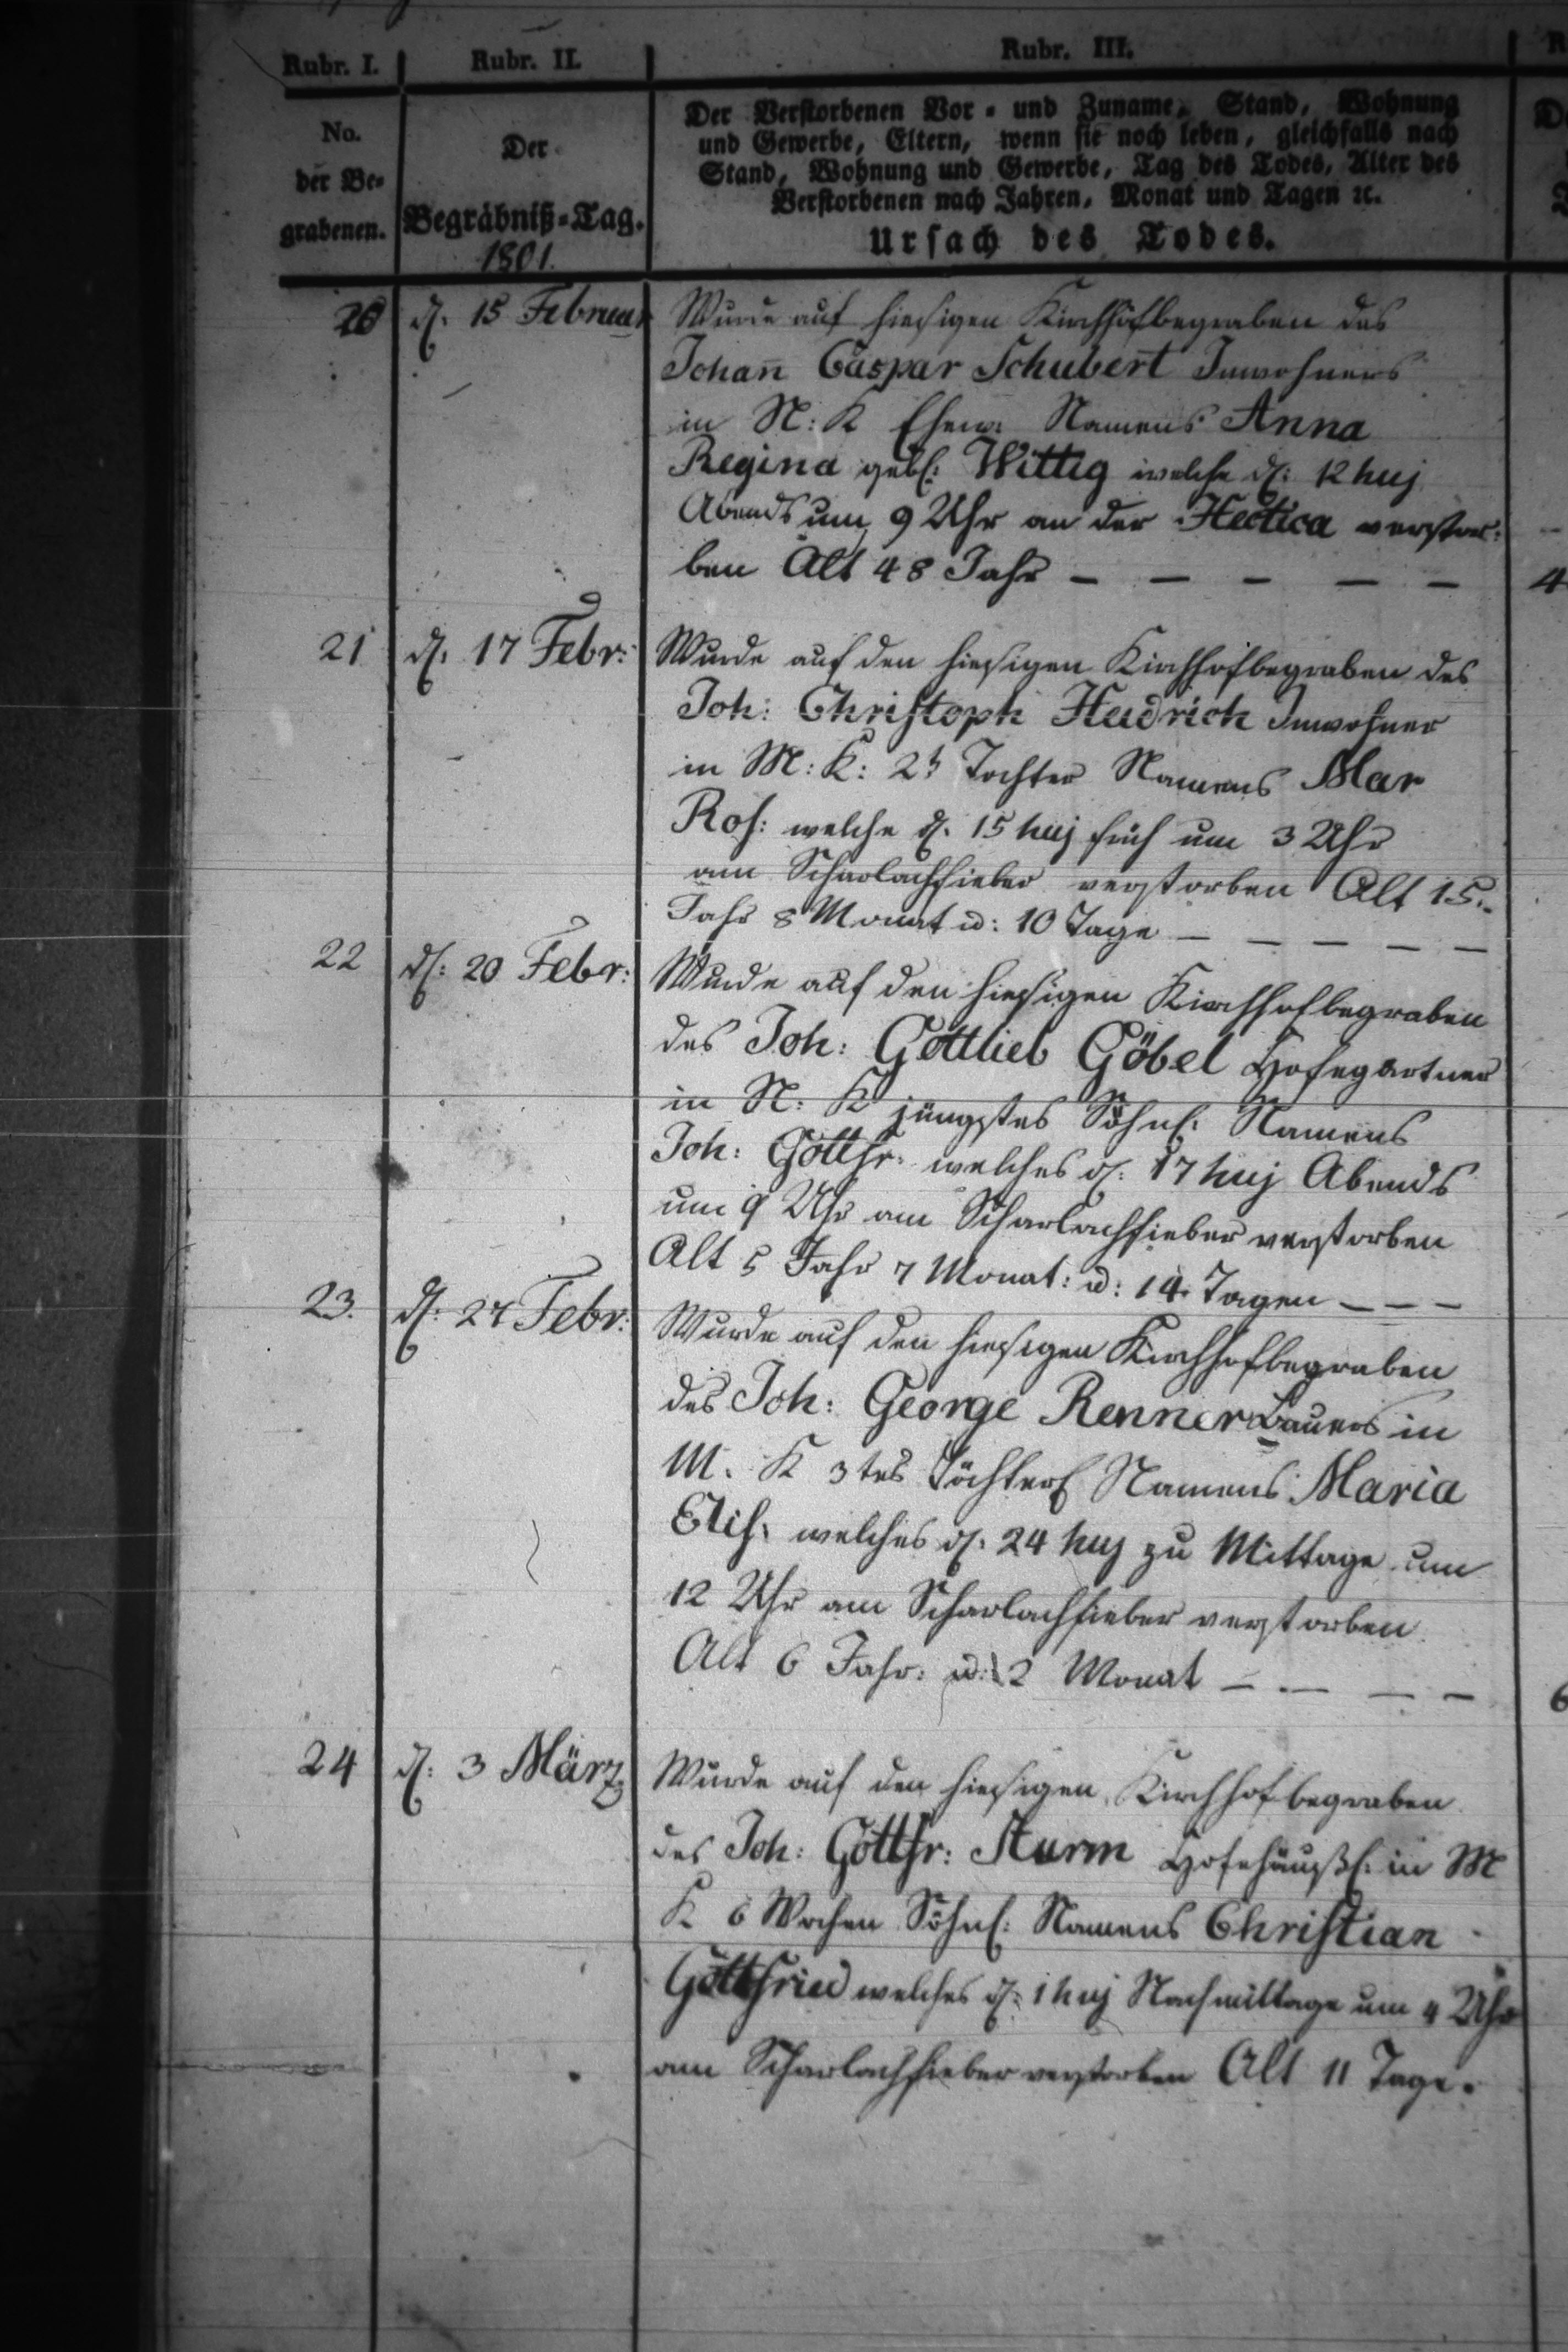 Rubr. I.
Rubr. II.
Rubr. III.
No.
der Be-
grabenen.
Der
Begräbniß-Tag.
1801.
Der Verstorbenen Vor- und Zuname, Stand, Wohnung
und Gewerbe, Eltern, wenn sie noch leben, gleichfalls nach
Stand, Wohnung und Gewerbe, Tag des Todes, Alter des
Verstorbenen nach Jahren, Monat und Tagen ꝛc.
Ursach des Todes.
20
d. 15 Februar
Wurde auf hiesigen Kirchhof begraben des
Johan̄ Caspar Schubert Inwohners
in N: K Ehew: Namens Anna
Regina geb: Wittig welche d: 12 huj
Abends um 9 Uhr an der Hectica verstor:
ben Alt 48 Jahr — — — — —
4
21
d. 17 Febr:
Wurde auf den hiesigen Kirchhof begraben des
Joh: Christoph Heidrich Inwohner
in M: K: 2t Tochter Namens Mar
Ros: welche d. 15 huj früh um 3 Uhr
am Scharlachfieber verstorben Alt 15.
Jahr 8 Monat u: 10 Tage — — — — —
22
d: 20 Febr:
Wurde auf den hiesigen Kirchhof begraben
des Joh: Gottlieb Göbel Hofegärtner
in N: K jüngstes Söhnl: Namens
Joh: Gottfr: welches d: 17 huj Abends
um 9 Uhr am Scharlachfieber verstorben
Alt 5 Jahr 7 Monat: u: 14 Tagen — — —
23.
d: 27 Febr:
Wurde auf den hiesigen Kirchhof begraben
des Joh: George Renner Bauers in
M. K 3tes Töchterl Namens Maria
Elis: welches d. 24 huj zu Mittage um
12 Uhr am Scharlachfieber verstorben
Alt 6 Jahr: u: 2 Monat — — — —
6
24
d: 3 März
Wurde auf den hiesigen Kirchhof begraben
des Joh: Gottfr: Sturm Hofehäußl: in M
K 6 Wochen Söhnl: Namens Christian
Gottfried welches d: 1 huj Nachmittage um 4 Uhr
am Scharlachfieber verstorben Alt 11 Tage.